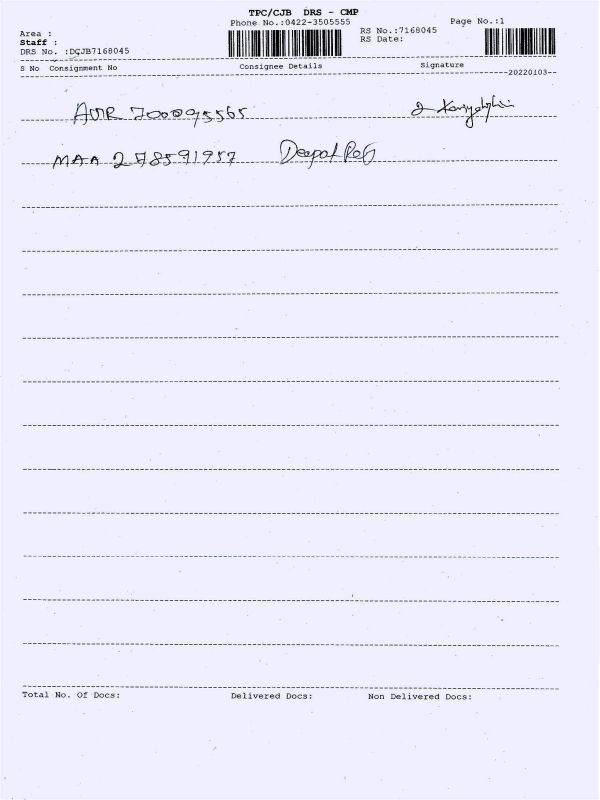 TPC/CJB DRS - CMP
Phone No.:0422-3505555
Page No.:1
Area :
RS No.:7168045
Staff :
RS Date:
DRS No. :DCJB7168045
S No Consignment No Consignee Details Signature
20220103
AUR 700095565
MAA 278591957 Deepak
Total No. Of Docs: Delivered Docs: Non Delivered Docs: